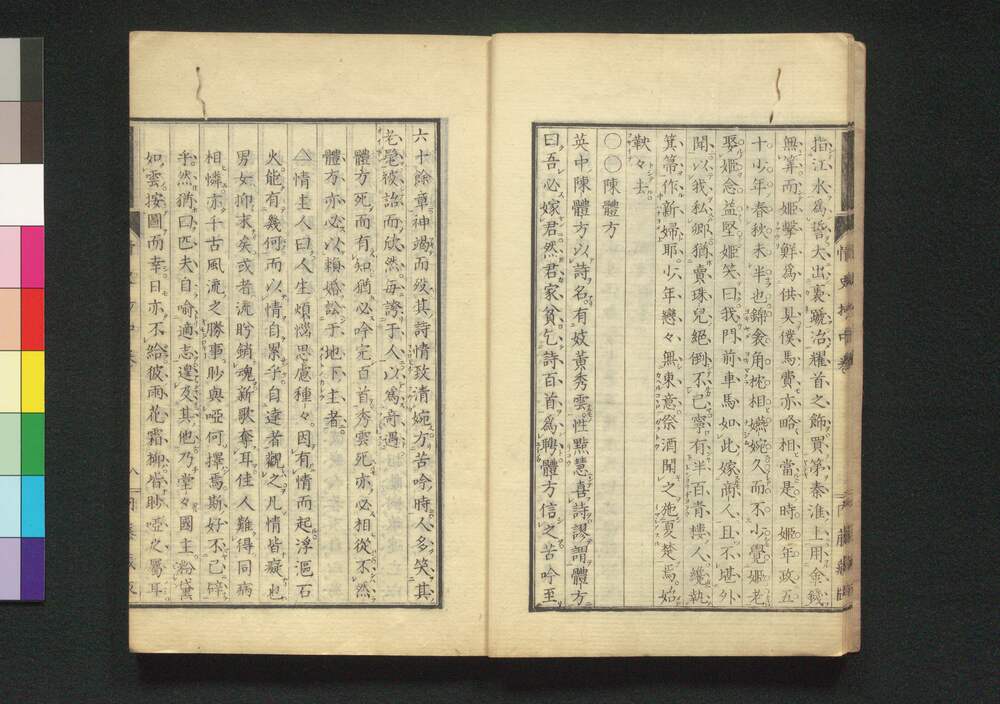 指江水爲誓大出裏蹏治耀首之飾買第秦淮上用金錢
無筭而姬擊鮮爲供具僕馬費亦略相當是時姬年政五
十少年春秋未半也錦衾角枕相嬿婉久而不少覺姬老
娶姬念益堅姬笑曰我門前車馬如此嫁商人且不堪外
聞以我私卿猶賣珠兒絕倒不已寧有半百靑樓人纔執
箕箒作新婦耶少年戀々無東意祭酒聞之施夏楚焉始
鞅々去
陳體方
英中陳體方以詩名有妓黃秀雲性黠慧喜詩謬謂體方
曰吾必嫁君然君家貧乞詩百首爲聘體方信之苦吟至
六十餘章神竭而歿其詩情致淸婉方苦吟時人多笑其
老髦被詒而欣然毎誇于人以爲奇遇
體方死而有知猶必吟完百首秀雲死亦必相從不然
體方亦必以賴婚訟于地下主者
情主人曰人生煩惱思慮種々因有情而起浮漚石
火能有幾何而以情自累乎自達者觀之凡情皆癡也
男女抑末矣或者流盻銷魂新歌奪耳佳人難得同病
相憐亦千古風流之勝事眇與啞何擇焉斯好不已碎
乎然猶曰匹夫自喻適志遑及其他乃堂々國主粉黛
如雲按圖而幸日亦不給彼雨花霜柳皆眇啞之屬耳